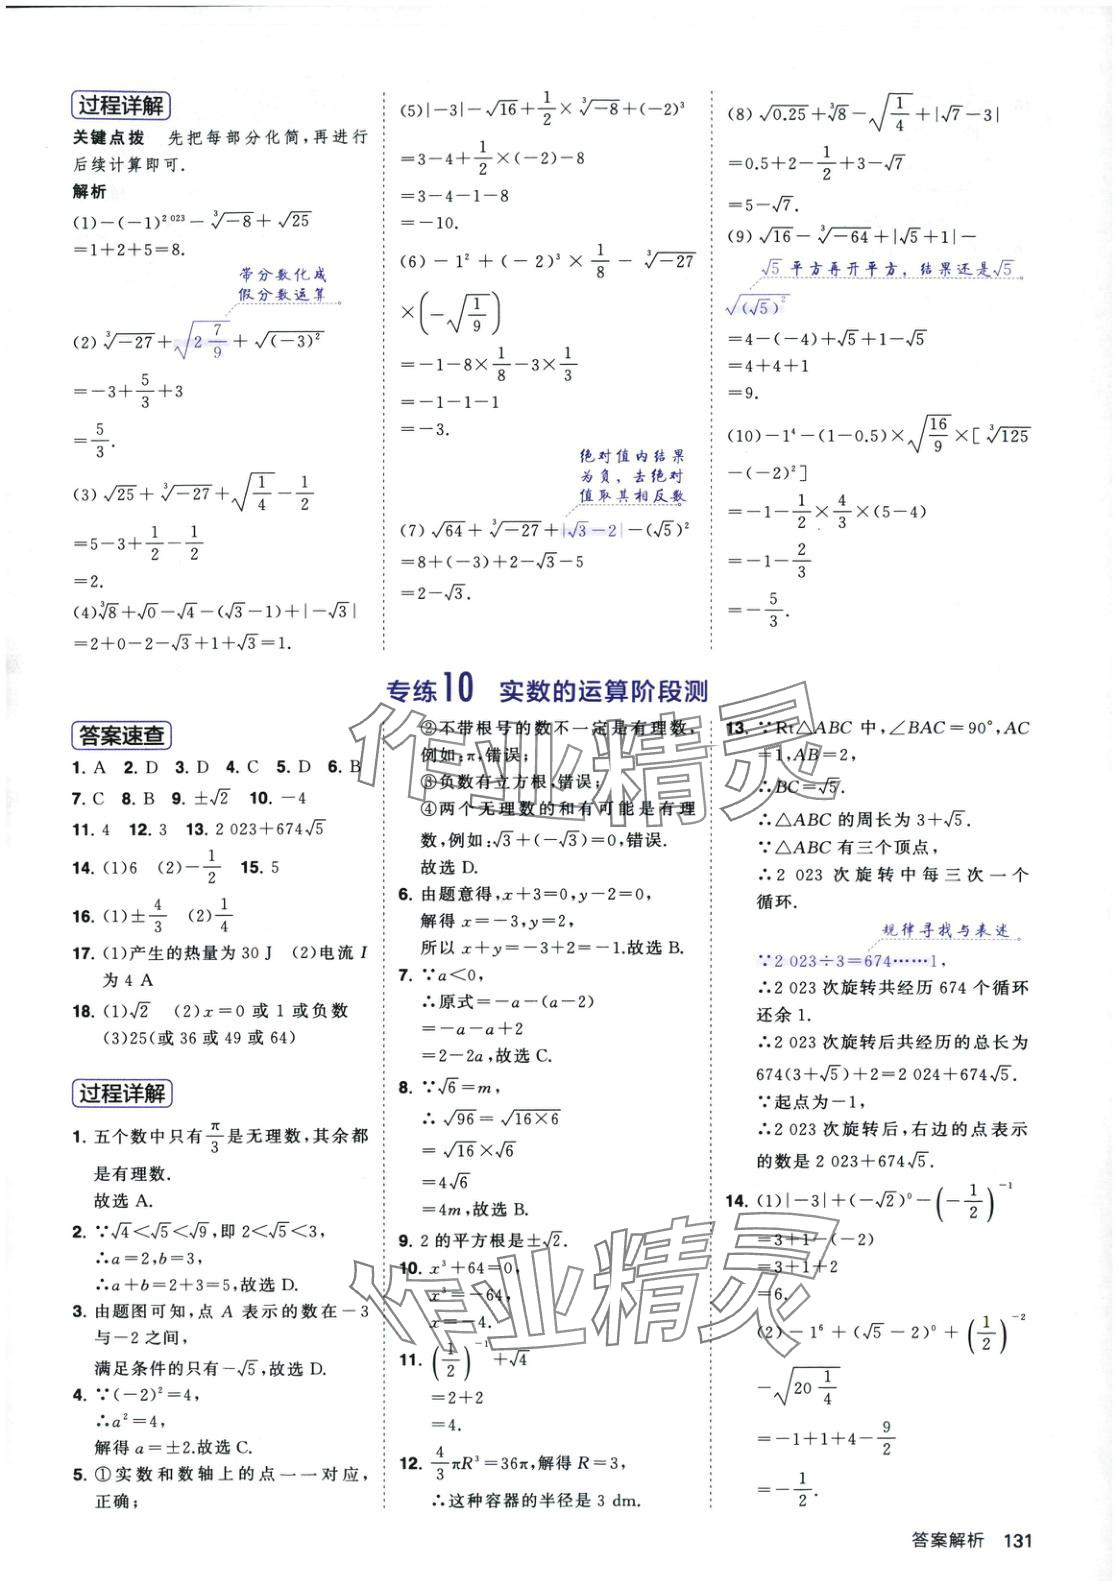 过程详解
关键点拨　先把每部分化简,再进行
后续计算即可.
解析
(1)-(-1)²⁰²³-∛-8+√25
=1+2+5=8.
带分数化成
假分数运算
(2)∛-27+√(2 7/9)+√(-3)²
=-3+5/3+3
=5/3.
(3)√25+∛-27+√(1/4)-1/2
=5-3+1/2-1/2
=2.
(4)∛8+√0-√4-(√3-1)+|-√3|
=2+0-2-√3+1+√3=1.
(5)|-3|-√16+1/2×∛-8+(-2)³
=3-4+1/2×(-2)-8
=3-4-1-8
=-10.
(6)-1²+(-2)³×1/8-∛-27
×(-√(1/9))
=-1-8×1/8-3×1/3
=-1-1-1
=-3.
绝对值内结果
为负，去绝对
值取其相反数
(7)√64+∛-27+|√3-2|-(√5)²
=8+(-3)+2-√3-5
=2-√3.
(8)√0.25+∛8-√(1/4)+|√7-3|
=0.5+2-1/2+3-√7
=5-√7.
(9)√16-∛-64+|√5+1|-
√5平方再开平方，结果还是√5
√(√5)²
=4-(-4)+√5+1-√5
=4+4+1
=9.
(10)-1⁴-(1-0.5)×√(16/9)×[∛125
-(-2)²]
=-1-1/2×4/3×(5-4)
=-1-2/3
=-5/3.
专练10　实数的运算阶段测
答案速查
1. A　2. D　3. D　4. C　5. D　6. B
7. C　8. B　9. ±√2　10. -4
11. 4　12. 3　13. 2 023+674√5
14. (1)6　(2)-1/2　15. 5
16. (1)±4/3　(2)1/4
17. (1)产生的热量为30 J　(2)电流I
为4 A
18. (1)√2　(2)x=0或1或负数
(3)25(或36或49或64)
过程详解
1. 五个数中只有π/3是无理数,其余都
是有理数.
故选A.
2. ∵√4<√5<√9,即2<√5<3,
∴a=2,b=3,
∴a+b=2+3=5,故选D.
3. 由题图可知,点A表示的数在-3
与-2之间,
满足条件的只有-√5,故选D.
4. ∵(-2)²=4,
∴a²=4,
解得a=±2.故选C.
5. ①实数和数轴上的点一一对应,
正确;
②不带根号的数不一定是有理数,
例如:π,错误;
③负数有立方根,错误;
④两个无理数的和有可能是有理
数,例如:√3+(-√3)=0,错误.
故选D.
6. 由题意得,x+3=0,y-2=0,
解得x=-3,y=2,
所以x+y=-3+2=-1.故选B.
7. ∵a<0,
∴原式=-a-(a-2)
=-a-a+2
=2-2a,故选C.
8. ∵√6=m,
∴√96=√16×6
=√16×√6
=4√6
=4m,故选B.
9. 2的平方根是±√2.
10. x³+64=0,
x³=-64,
x=-4.
11. (1/2)⁻¹+√4
=2+2
=4.
12. 4/3πR³=36π,解得R=3,
∴这种容器的半径是3 dm.
13. ∵Rt△ABC中,∠BAC=90°,AC
=1,AB=2,
∴BC=√5.
∴△ABC的周长为3+√5.
∵△ABC有三个顶点,
∴2 023次旋转中每三次一个
循环.
规律寻找与表述
∵2 023÷3=674……1,
∴2 023次旋转共经历674个循环
还余1.
∴2 023次旋转后共经历的总长为
674(3+√5)+2=2 024+674√5.
∵起点为-1,
∴2 023次旋转后,右边的点表示
的数是2 023+674√5.
14. (1)|-3|+(-√2)⁰-(-1/2)⁻¹
=3+1-(-2)
=3+1+2
=6.
(2)-1⁶+(√5-2)⁰+(1/2)⁻²
-√(20 1/4)
=-1+1+4-9/2
=-1/2.
作业精灵
作业精灵
答案解析　131